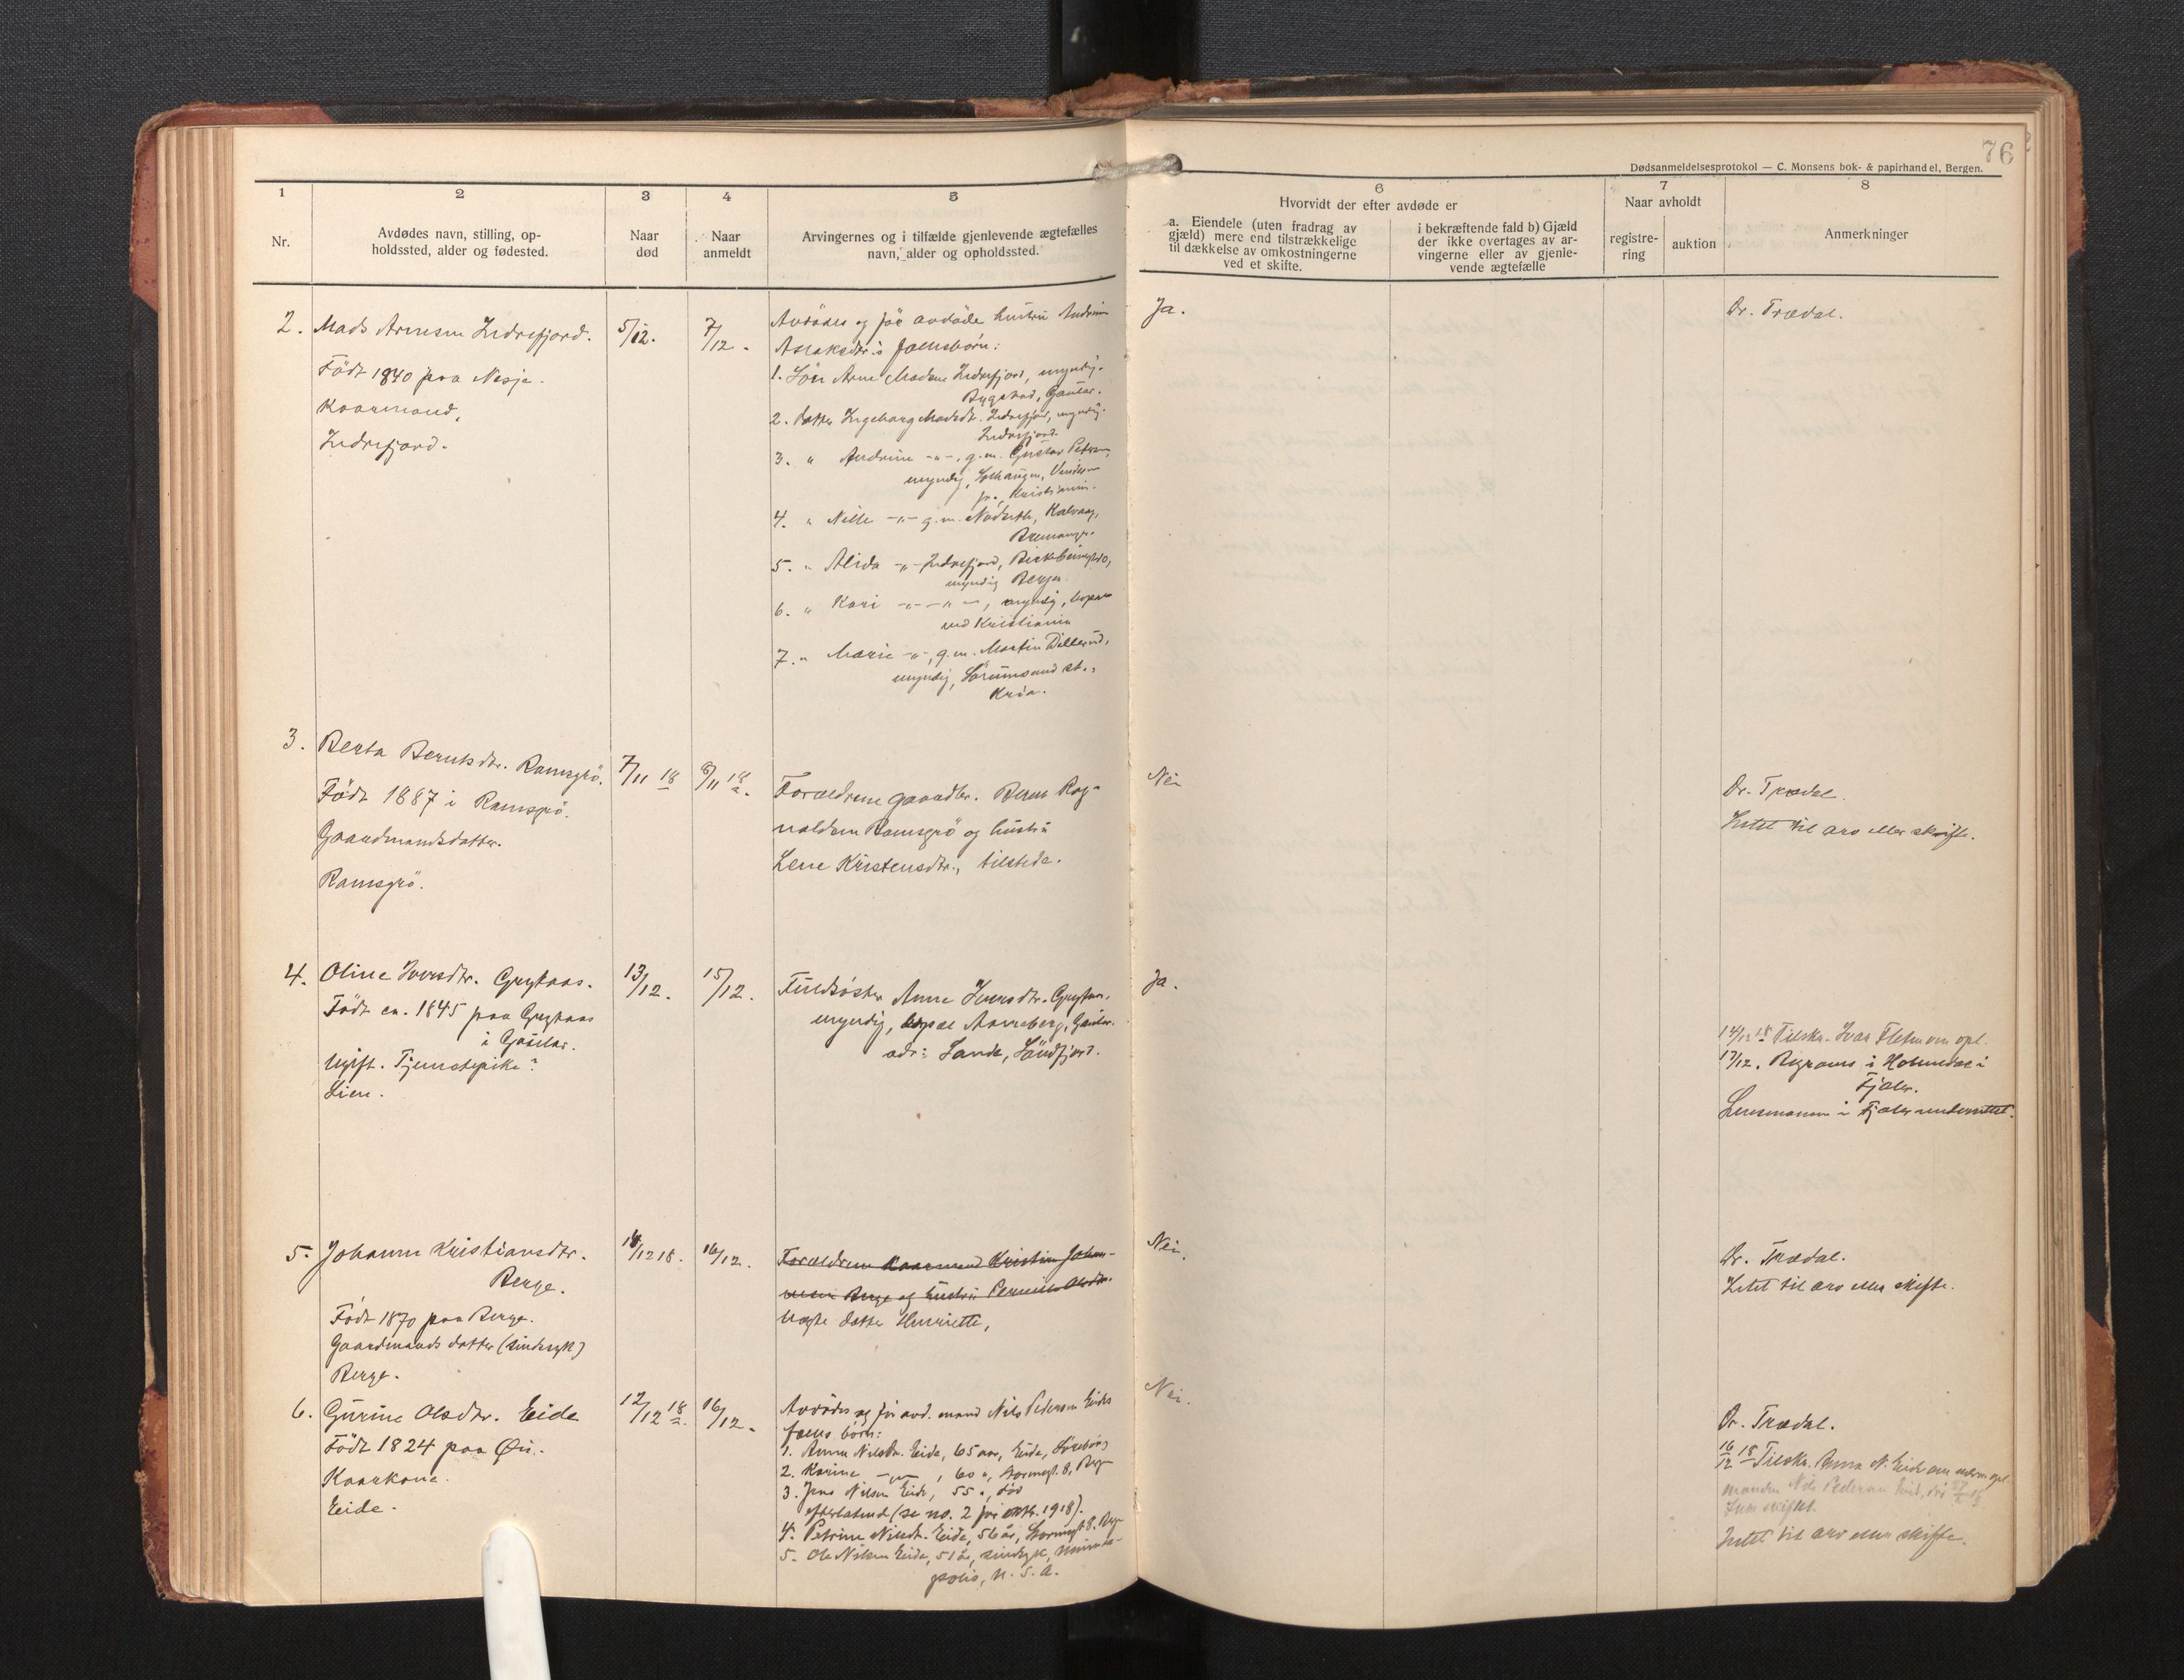 76
Dødsanmeldelsesprotokol — C. Monsens bok- & papirhandel, Bergen.
1 2 3 4 5 6 7 8
Nr.
Avdødes navn, stilling, op-
holdssted, alder og fødested.
Naar
død
Naar
anmeldt
Arvingernes og i tilfælde gjenlevende ægtefælles
navn, alder og opholdssted.
Hvorvidt der efter avdøde er
a. Eiendele (uten fradrag av
gjæld) mere end tilstrækkelige
til dækkelse av omkostningerne
ved et skifte.
i bekræftende fald b) Gjæld
der ikke overtages av ar-
vingerne eller av gjenle-
vende ægtefælle
Naar avholdt
registre-
ring
auktion
Anmerkninger
2. Mads Arnesen Indrefjord.
Født 1840 paa Nesje.
Kaarmand,
Indrefjord.
5/12.
7/12.
Avdødes og før avdøde hustru Andrine
Aslaksdtr.s fællesbørn:
1. Søn Arne Madsen Indrefjord, myndig.
Bygstad, Gaular.
2. Datter Ingeborg Madsdt. Indrefjord, myndig.
Indrefjord.
3. " Andrine -"-, g.m. Gustav
myndig,
pr. Kristiania.
4. " Nille -"- g.m. Kalvaag,
Bremanger.
5. " Alida -"- Indrefjord,
myndig Bergen.
6. " Kari -"- -"-, myndig,
ved Kristiania
7. " Marie -"-, g.m. Martin
myndig, Sørumsand st.,
Kr.ia.
Ja.
Dr. Trædal.
3. Berta Berntsdtr. Ramsgrø.
Født 1887 i Ramsgrø.
Gaardmandsdatter.
Ramsgrø.
7/11 18
8/11 18.
Forældrene gaardbr. Bernt Rag-
naldsen Ramsgrø og hustru
Lene Kristensdtr., tilstede.
Nei
Dr. Trædal.
Intet til arv eller skifte.
4. Oline Iversdtr. Grytaas.
Født ca. 1845 paa Grytaas
i Gaular.
Ugift. Tjenestepike?
Lien.
13/12.
15/12.
Fuldsøster Anne Iversdtr. Grytaas,
myndig, Gaular.
adr: Sande, Søndfjord.
Ja.
14/12 18 Tilskr. Ivar
17/12. i Holmedal i
Fjaler.
Lensmannen i Fjaler underrettet.
5. Johanne Kristiansdtr.
Berge.
Født 1870 paa Berge.
Gaardmands datter (sindssyk)
Berge.
14/12 18.
16/12.
Forældrene kaarmand Kristian Johan-
nesen Berge og hustru Pernille Olsdtr.
Uegte datter Henriette,
Nei.
Dr. Trædal.
Intet til arv eller skifte.
6. Gurine Olsdtr. Eide
Født 1824 paa Øn.
Kaarkone.
Eide.
12/12 18.
16/12.
Avdødes og før avd. mand Nils Pedersen Eides
fælles børn:
1. Anna Nilsdtr. Eide, 65 aar, Eide,
2. Karine -"-, 60 ",
3. Jens Nilsen Eide, 55 ", død
efterlatende (se no. 2 for 1918).
4. Petrine Nilsdt. Eide, 56 år,
5. Ole Nilsen Eide, 51 år, sindssyk, Minnea-
polis, U. S. A.
Nei.
Dr. Trædal.
16/12 18 Tilskr. Anna N. Eide om
manden Nils Pedersen Eide,
Intet til arv eller skifte.